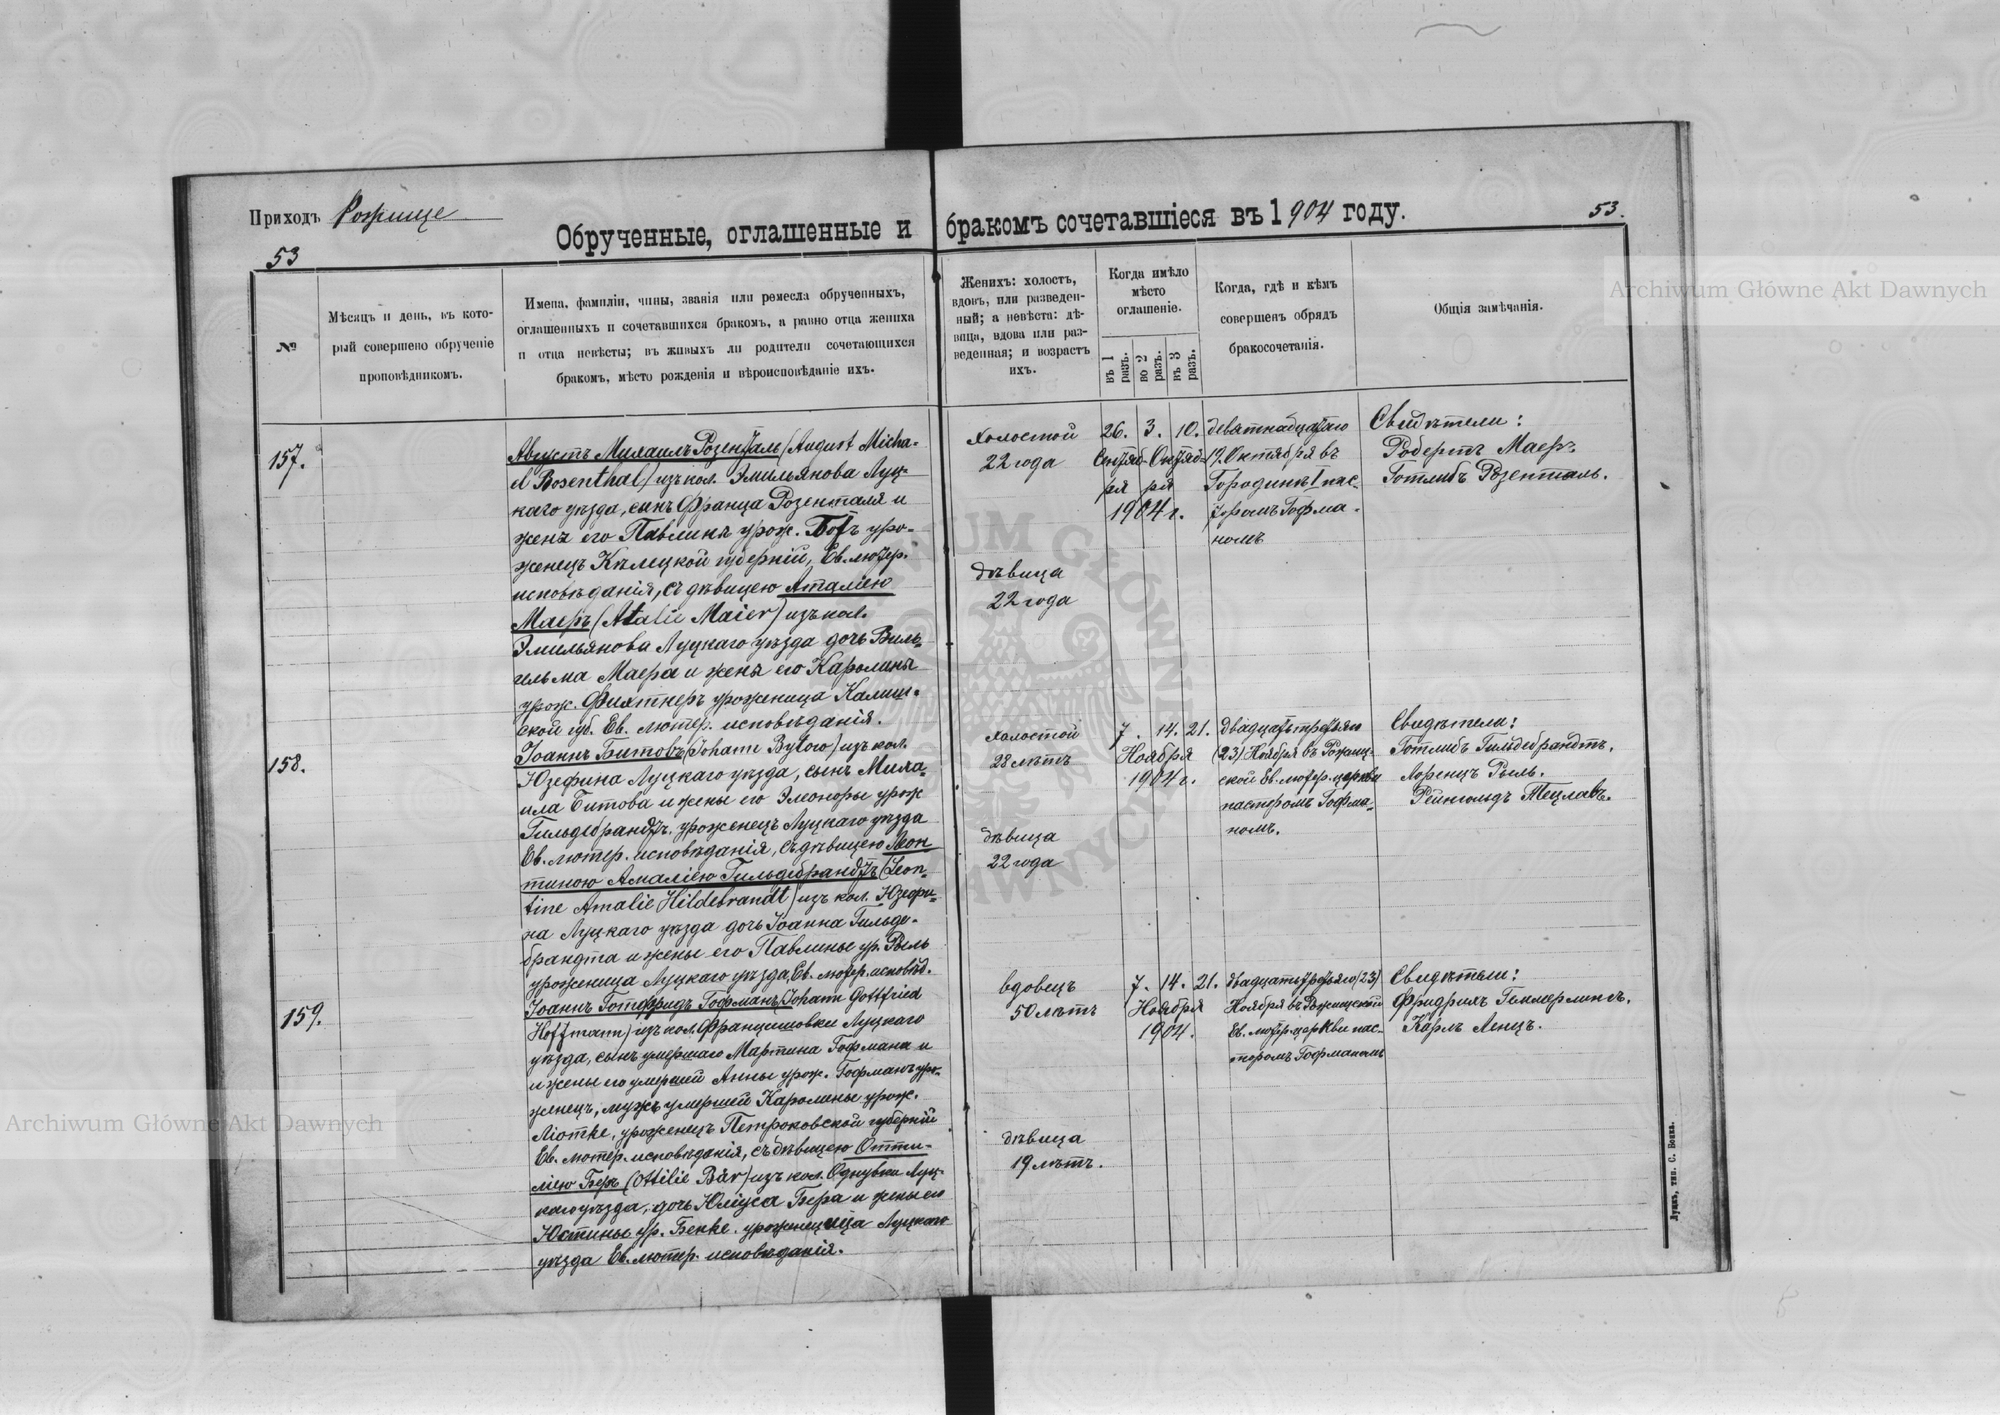 Приходъ Рожище
Обрученные, оглашенные и бракомъ сочетавшіеся въ 1904 году.
53
53.
№
Мѣсяцъ и день, въ кото-
рый совершено обрученіе
проповѣдникомъ.
Имена, фамиліи, чины, званія или ремесла обрученныхъ,
оглашенныхъ и сочетавшихся бракомъ, а равно отца жениха
и отца невѣсты; въ живыхъ ли родители сочетающихся
бракомъ, мѣсто рожденія и вѣроисповѣданіе ихъ.
Женихъ: холостъ,
вдовъ, или разведен-
ный; а невѣста: дѣ-
вица, вдова или раз-
веденная; и возрастъ
ихъ.
Когда имѣло
мѣсто
оглашеніе.
въ 1
разъ.
во 2
разъ.
въ 3
разъ.
Когда, гдѣ и кѣмъ
совершенъ обрядъ
бракосочетанія.
Общія замѣчанія.
157.
Августъ Михаилъ Розенталь (August Micha-
el Rosenthal) изъ кол. Эмильянова Луц-
каго уѣзда, сынъ Франца Розенталя и
жены его Павлины урож. уро-
женецъ Кѣлецкой губерніи, Ев. лютер.
исповѣданія, съ дѣвицею Аталіею
Маеръ (Atalie Maier) изъ кол.
Эмильянова Луцкаго уѣзда дочь Виль-
гельма Маера и жены его Каролины
урож. Фихтнеръ уроженица Калиш-
ской губ. Ев. лютер. исповѣданія.
Холостой
22 года
дѣвица
22 года
26. 3. 10.
Сентяб- Октяб-
ря ря
1904 г.
девятнадцатаго
Октября въ
пас-
торомъ Гофма-
номъ
Свидѣтели:
Робертъ Маеръ.
Готлибъ Розенталь.
158.
Іоаннъ Битовъ (Johann Bytow) изъ кол.
Юзефина Луцкаго уѣзда, сынъ Миха-
ила Битова и жены его Элеоноры урож
Гильдебрандтъ, уроженецъ Луцкаго уѣзда
Ев. лютер. исповѣданія, съ дѣвицею Леон
тиною Амаліею Гильдебрандтъ (Leon-
tine Amalie Hildebrandt) изъ кол. Юзефи-
на Луцкаго уѣзда дочь Іоанна Гильде-
брандта и жены его Павлины ур. Рыль
уроженица Луцкаго уѣзда, Ев. лютер. исповѣд.
Холостой
28 лѣтъ
дѣвица
22 года
7. 14. 21.
Ноября
1904 г.
двадцать третьяго
(23) Ноября въ Рожищ-
ской Ев. лютер. церкви
пасторомъ Гофма-
номъ.
Свидѣтели:
Готлибъ Гильдебрандтъ.
Лоренцъ Рыль.
Рейнгольдъ Тецлавъ.
159.
Іоаннъ Готфридъ Гофманъ (Johann Gottfried
Hoffmann) изъ кол. Францишовки Луцкаго
уѣзда, сынъ умершаго Мартина Гофмана и
и жены его умершей Анны урож. Гофманъ уро-
женецъ, мужъ умершей Каролины урож.
Лютке, уроженецъ Петроковской губерніи
Ев. лютер. исповѣданія, съ дѣвицею Отти-
ліею Беръ (Ottilie Bär) изъ кол. Луц-
каго уѣзда, дочь Юліуса Бера и жены его
Юстины ур. Бенке. уроженица Луцкаго
уѣзда Ев. лютер. исповѣданія.
вдовецъ
50 лѣтъ
дѣвица
19 лѣтъ.
7. 14. 21.
Ноября
1904.
двадцать третьяго (23)
Ноября въ Рожищской
Ев. лютер. церкви пас-
торомъ Гофманомъ
Свидѣтели:
Фридрихъ
Карлъ Ленцъ.
Луцкъ, тип. С. Бокка.
Archiwum Główne Akt Dawnych
Archiwum Główne Akt Dawnych